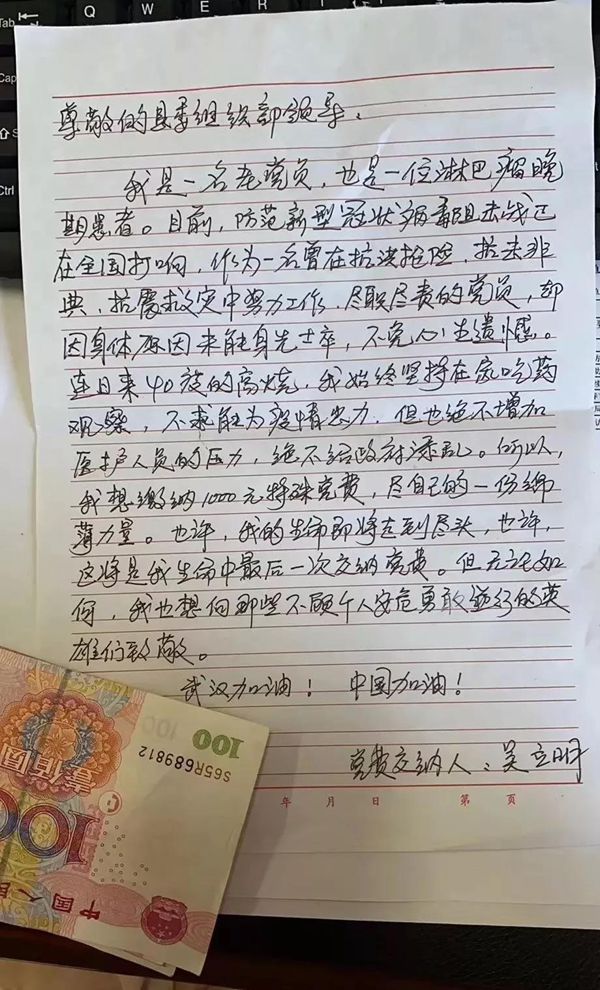 Tab
Q W E R T
Cap
Ctrl
尊敬的县委组织部领导:
我是一名老党员,也是一位淋巴瘤晚
期患者。目前,防范新型冠状病毒阻击战已
在全国打响,作为一名曾在抗洪抢险、抗击非
典、抗震救灾中努力工作、尽职尽责的党员,却
因身体原因未能身先士卒,不免心生遗憾。
连日来40度的高烧,我始终坚持在家吃药
观察,不求能为疫情出力,但也绝不增加
医护人员的压力,绝不给政府添乱。所以,
我想缴纳1000元特殊党费,尽自己的一份绵
薄力量。也许,我的生命即将走到尽头,也许,
这将是我生命中最后一次交纳党费。但无论如
何,我也想向那些不顾个人安危勇敢逆行的英
雄们致敬。
武汉加油! 中国加油!
党费交纳人:吴立明
年 月 日 第 页
100
S65R689812
壹佰圆
100
中国人民